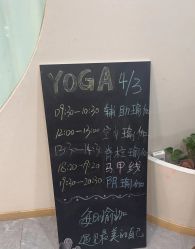 YOGA 4/3
09:30-10:30 辅助瑜伽
12:00-13:00 空中瑜伽
13:30-14:30 脊柱瑜伽
18:20-19:20 马甲线
19:30-20:30 阴瑜伽
每日瑜伽
遇见最美的自己